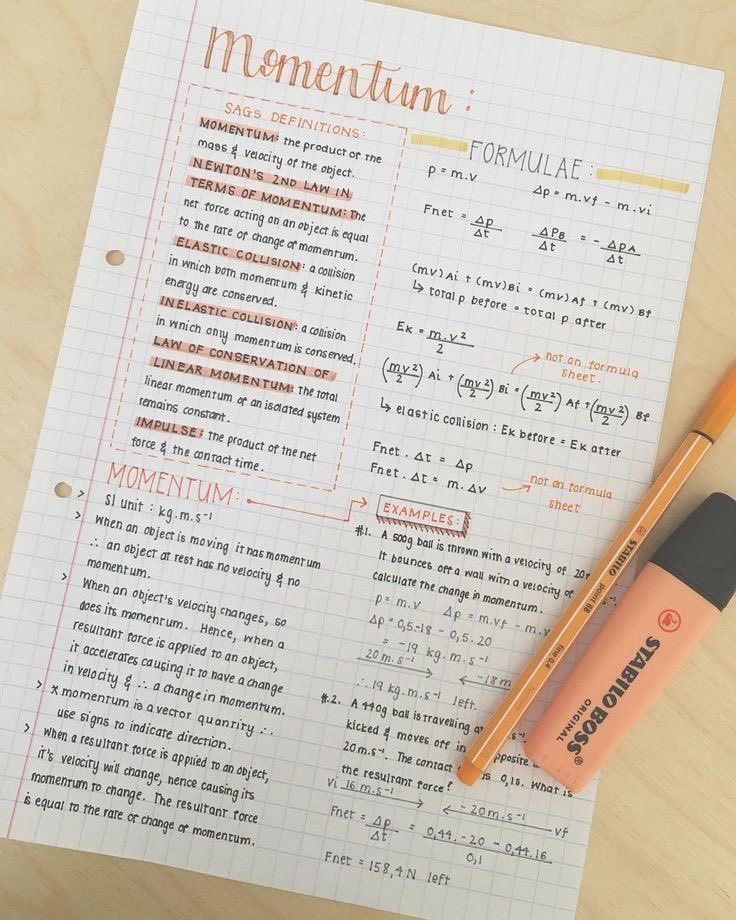 Momentum :
SAGS DEFINITIONS:
MOMENTUM: the product of the
mass & velocity of the object.
NEWTON'S 2ND LAW IN
TERMS OF MOMENTUM: The
net force acting on an object is equal
to the rate of change of momentum.
ELASTIC COLLISION: a collision
in which both momentum & kinetic
energy are conserved.
INELASTIC COLLISION: a collision
in which only momentum is conserved.
LAW OF CONSERVATION OF
LINEAR MOMENTUM: The total
linear momentum of an isolated system
remains constant.
IMPULSE: the product of the net
force & the contact time.
FORMULAE :
p = m.v Δp = m.vf - m.vi
Fnet = Δp/Δt ΔPB/Δt = - ΔPA/Δt
(mv)Ai + (mv)Bi = (mv)Af + (mv)Bf
↳ total p before = total p after
Ek = m.v²/2
not on formula
sheet.
(mv²/2) Ai + (mv²/2) Bi = (mv²/2) Af + (mv²/2) Bf
↳ elastic collision : Ek before = Ek after
Fnet . Δt = Δp
Fnet . Δt = m. Δv
not on formula
sheet
MOMENTUM:
> SI unit : kg.m.s⁻¹
> When an object is moving it has momentum
∴ an object at rest has no velocity & no
momentum.
> When an object's velocity changes, so
does its momentum. Hence, when a
resultant force is applied to an object,
it accelerates causing it to have a change
in velocity & ∴ a change in momentum.
> * momentum is a vector quantity ∴
use signs to indicate direction.
> When a resultant force is applied to an object,
it's velocity will change, hence causing its
momentum to change. The resultant force
is equal to the rate of change of momentum.
EXAMPLES:
#1. A 500g ball is thrown with a velocity of 20
It bounces off a wall with a velocity of
calculate the change in momentum.
p = m.v Δp = m.vf - m.v
Δp = 0,5.-18 - 0,5.20
= -19 kg.m.s⁻¹
20m.s⁻¹ -18m
∴ 19 kg.m.s⁻¹ left.
#2. A 440g ball is travelling a
kicked & moves off in opposite
20m.s⁻¹. The contact is 0,1s. What is
the resultant force?
vi 16 m.s⁻¹ -20m.s⁻¹ vf
Fnet = Δp/Δt = 0,44.-20 - 0,44.16/0,1
Fnet = 158,4N left
STABILO point 88 fine 0,4
STABILO BOSS
ORIGINAL